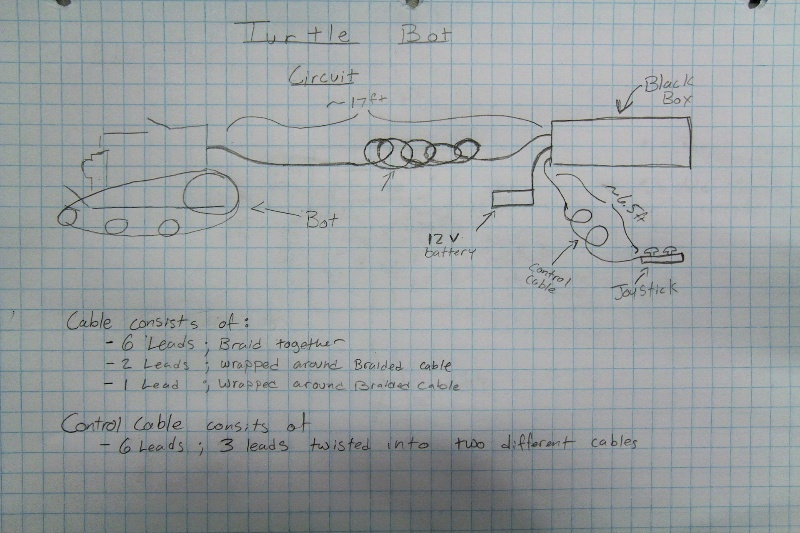 Turtle Bot
Circuit
~17ft
Black
Box
~6.5ft
Bot
12 V
battery
Control
Cable
Joystick
Cable consists of:
- 6 Leads ; Braid together
- 2 Leads ; wrapped around Braided cable
- 1 Lead ; Wrapped around Braided Cable
Control Cable consits of
- 6 Leads ; 3 leads twisted into two different cables